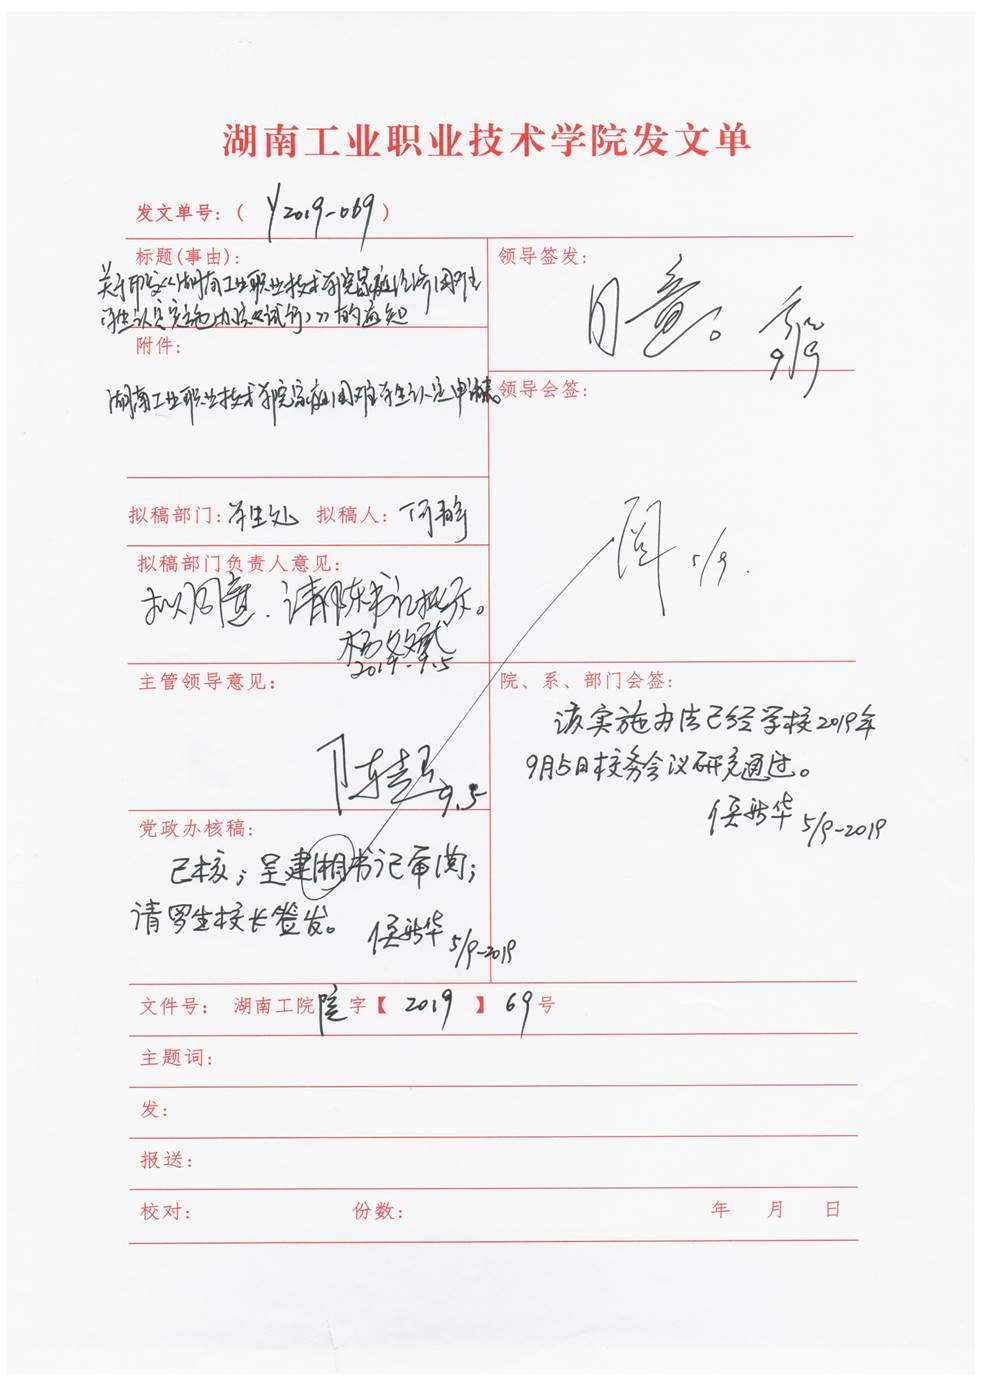 湖南工业职业技术学院发文单
发文单号：（ Y2019-069 ）
标题(事由)：
关于印发《湖南工业职业技术学院家庭经济困难
学生认定实施办法（试行）》的通知
附件：
湖南工业职业技术学院家庭困难学生认定申请表。
拟稿部门：学生处 拟稿人：何
拟稿部门负责人意见：
拟同意，请陈书记批示。
2019.9.5
主管领导意见：
陈超 9.5
党政办核稿：
已核；呈建湘书记审阅；
请罗生校长签发。
侯新华 5/9-2019
领导签发：
同意。
9/9
领导会签：
阅 5/9.
院、系、部门会签：
该实施办法已经学校2019年
9月5日校务会议研究通过。
侯新华 5/9-2019
文件号： 湖南工院院字【 2019 】 69号
主题词：
发：
报送：
校对： 份数： 年 月 日